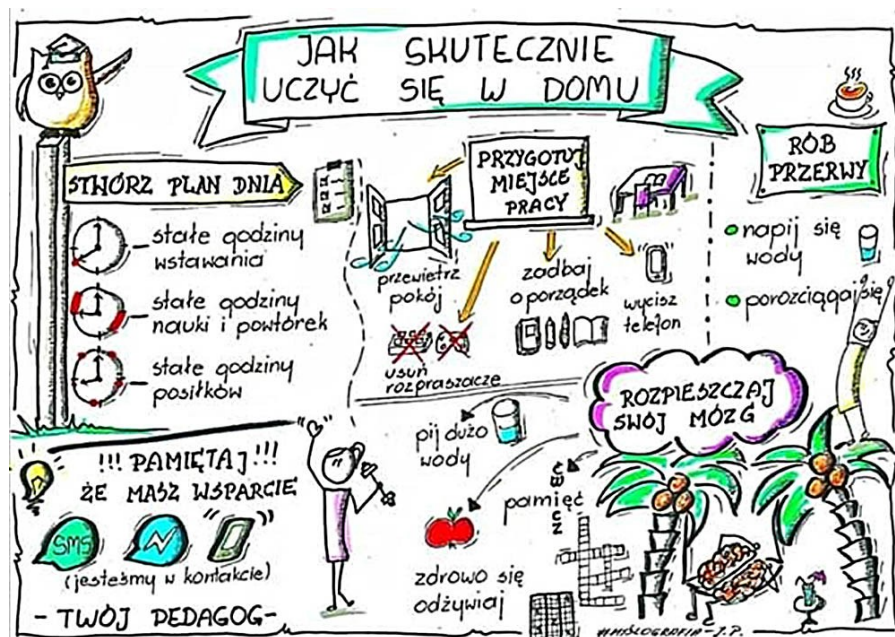 JAK SKUTECZNIE
UCZYĆ SIĘ W DOMU
STWÓRZ PLAN DNIA
stałe godziny
wstawania
stałe godziny
nauki i powtórek
stałe godziny
posiłków
PRZYGOTUJ
MIEJSCE
PRACY
przewietrz
pokój
usuń
rozpraszacze
zadbaj
o porządek
wycisz
telefon
RÓB
PRZERWY
napij się
wody
porozciągaj się
ROZPIESZCZAJ
SWÓJ MÓZG
pij dużo
wody
ćwicz
pamięć
zdrowo się
odżywiaj
!!! PAMIĘTAJ !!!
ŻE MASZ WSPARCIE
SMS
(jesteśmy w kontakcie)
- TWÓJ PEDAGOG -
#MYŚLOGRAFIA J.P.